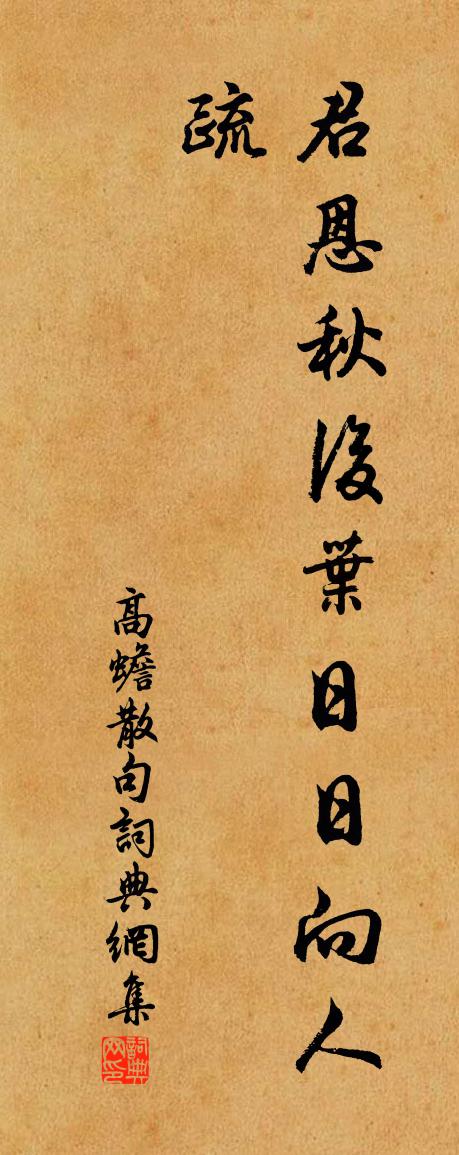 君恩秋後葉日日向人
疏
高蟾散句詞典網集
詞典網印